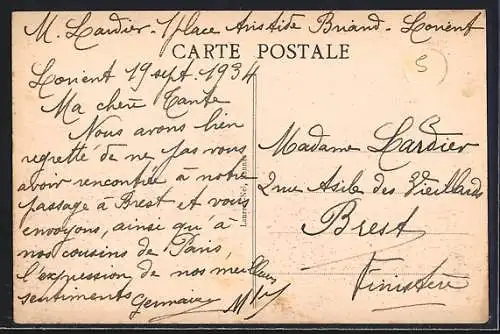 M. Lardier - 1 place Aristide Briand - Lorient
CARTE POSTALE
5
Lorient 19 sept. 1934
Ma chère Tante
Nous avons bien
regretté de ne pas vous
avoir rencontrée à notre
passage à Brest et vous
envoyons, ainsi qu'à
nos cousins de Paris,
l'expression de nos meilleurs
sentiments Germaine
Madame Lardier
2 rue Asile des Vieillards
Brest
Finistère